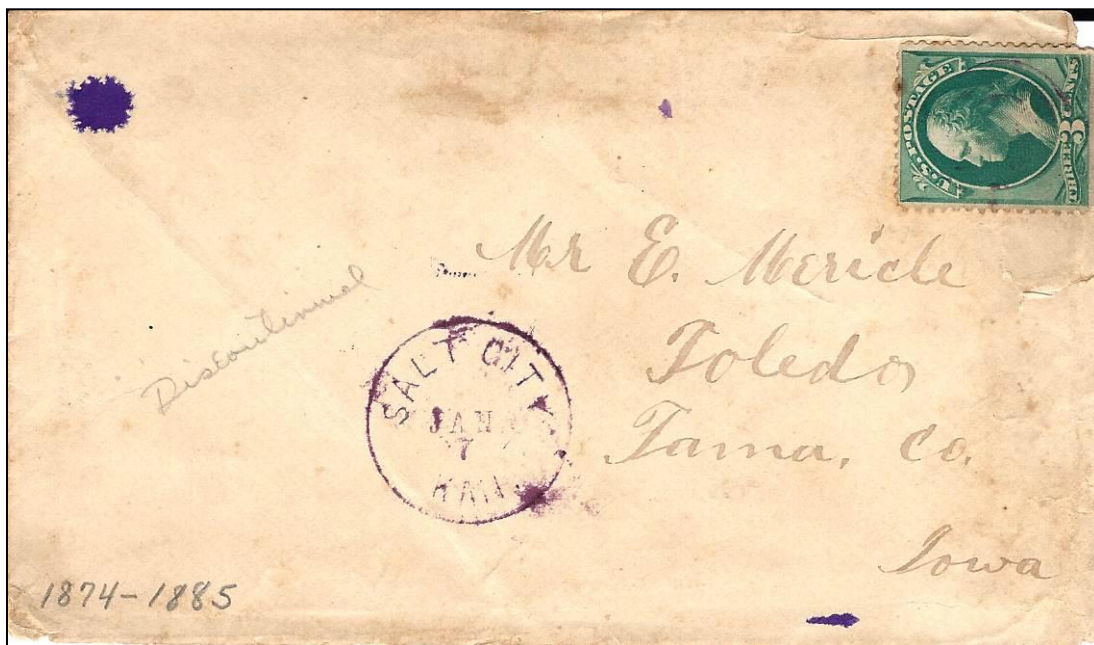 U.S. POSTAGE
THREE 3 CENTS
Mr E. Mericle
Toledo,
Tama, Co.
Iowa
Discontinued
SALT CITY
JAN
7
KAN.
1874-1885